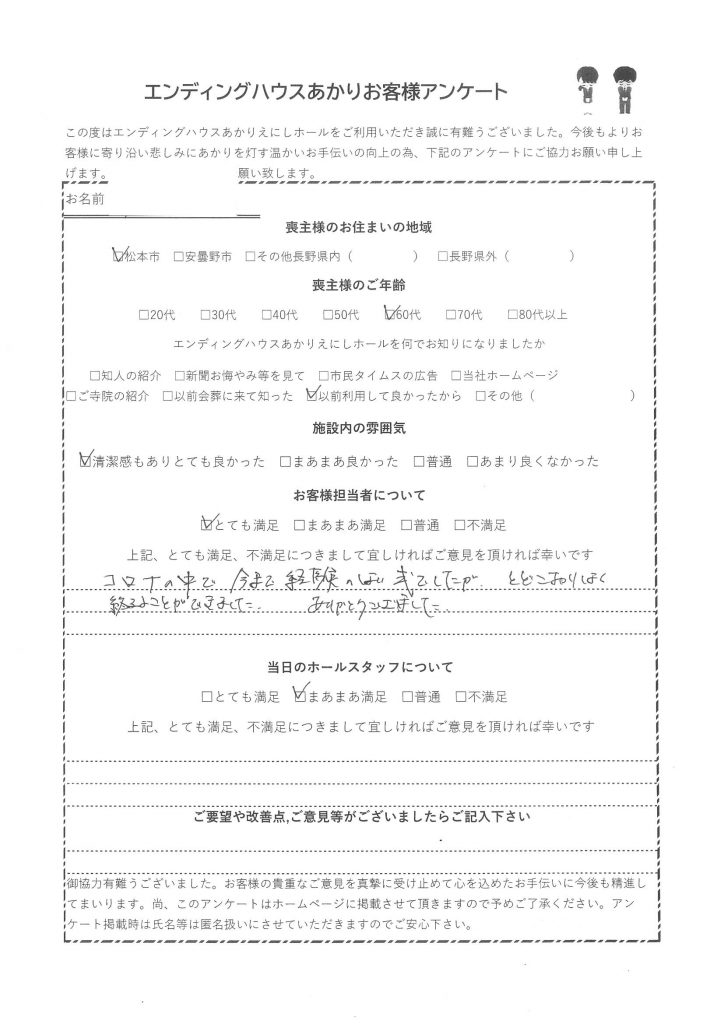 エンディングハウスあかりお客様アンケート
この度はエンディングハウスあかりえにしホールをご利用いただき誠に有難うございました。今後もよりお
客様に寄り沿い悲しみにあかりを灯す温かいお手伝いの向上の為、下記のアンケートにご協力お願い申し上
げます。 願い致します。
お名前
喪主様のお住まいの地域
☑松本市 □安曇野市 □その他長野県内（ ） □長野県外（ ）
喪主様のご年齢
□20代 □30代 □40代 □50代 ☑60代 □70代 □80代以上
エンディングハウスあかりえにしホールを何でお知りになりましたか
□知人の紹介 □新聞お悔やみ等を見て □市民タイムスの広告 □当社ホームページ
□ご寺院の紹介 □以前会葬に来て知った ☑以前利用して良かったから □その他（ ）
施設内の雰囲気
☑清潔感もありとても良かった □まあまあ良かった □普通 □あまり良くなかった
お客様担当者について
☑とても満足 □まあまあ満足 □普通 □不満足
上記、とても満足、不満足につきまして宜しければご意見を頂ければ幸いです
コロナの中で 今まで経験のない式でしたが、とどこおりなく
終ることができました。 ありがとうございました。
当日のホールスタッフについて
□とても満足 ☑まあまあ満足 □普通 □不満足
上記、とても満足、不満足につきまして宜しければご意見を頂ければ幸いです
ご要望や改善点,ご意見等がございましたらご記入下さい
御協力有難うございました。お客様の貴重なご意見を真摯に受け止めて心を込めたお手伝いに今後も精進し
てまいります。尚、このアンケートはホームページに掲載させて頂きますので予めご了承ください。アン
ケート掲載時は氏名等は匿名扱いにさせていただきますのでご安心下さい。